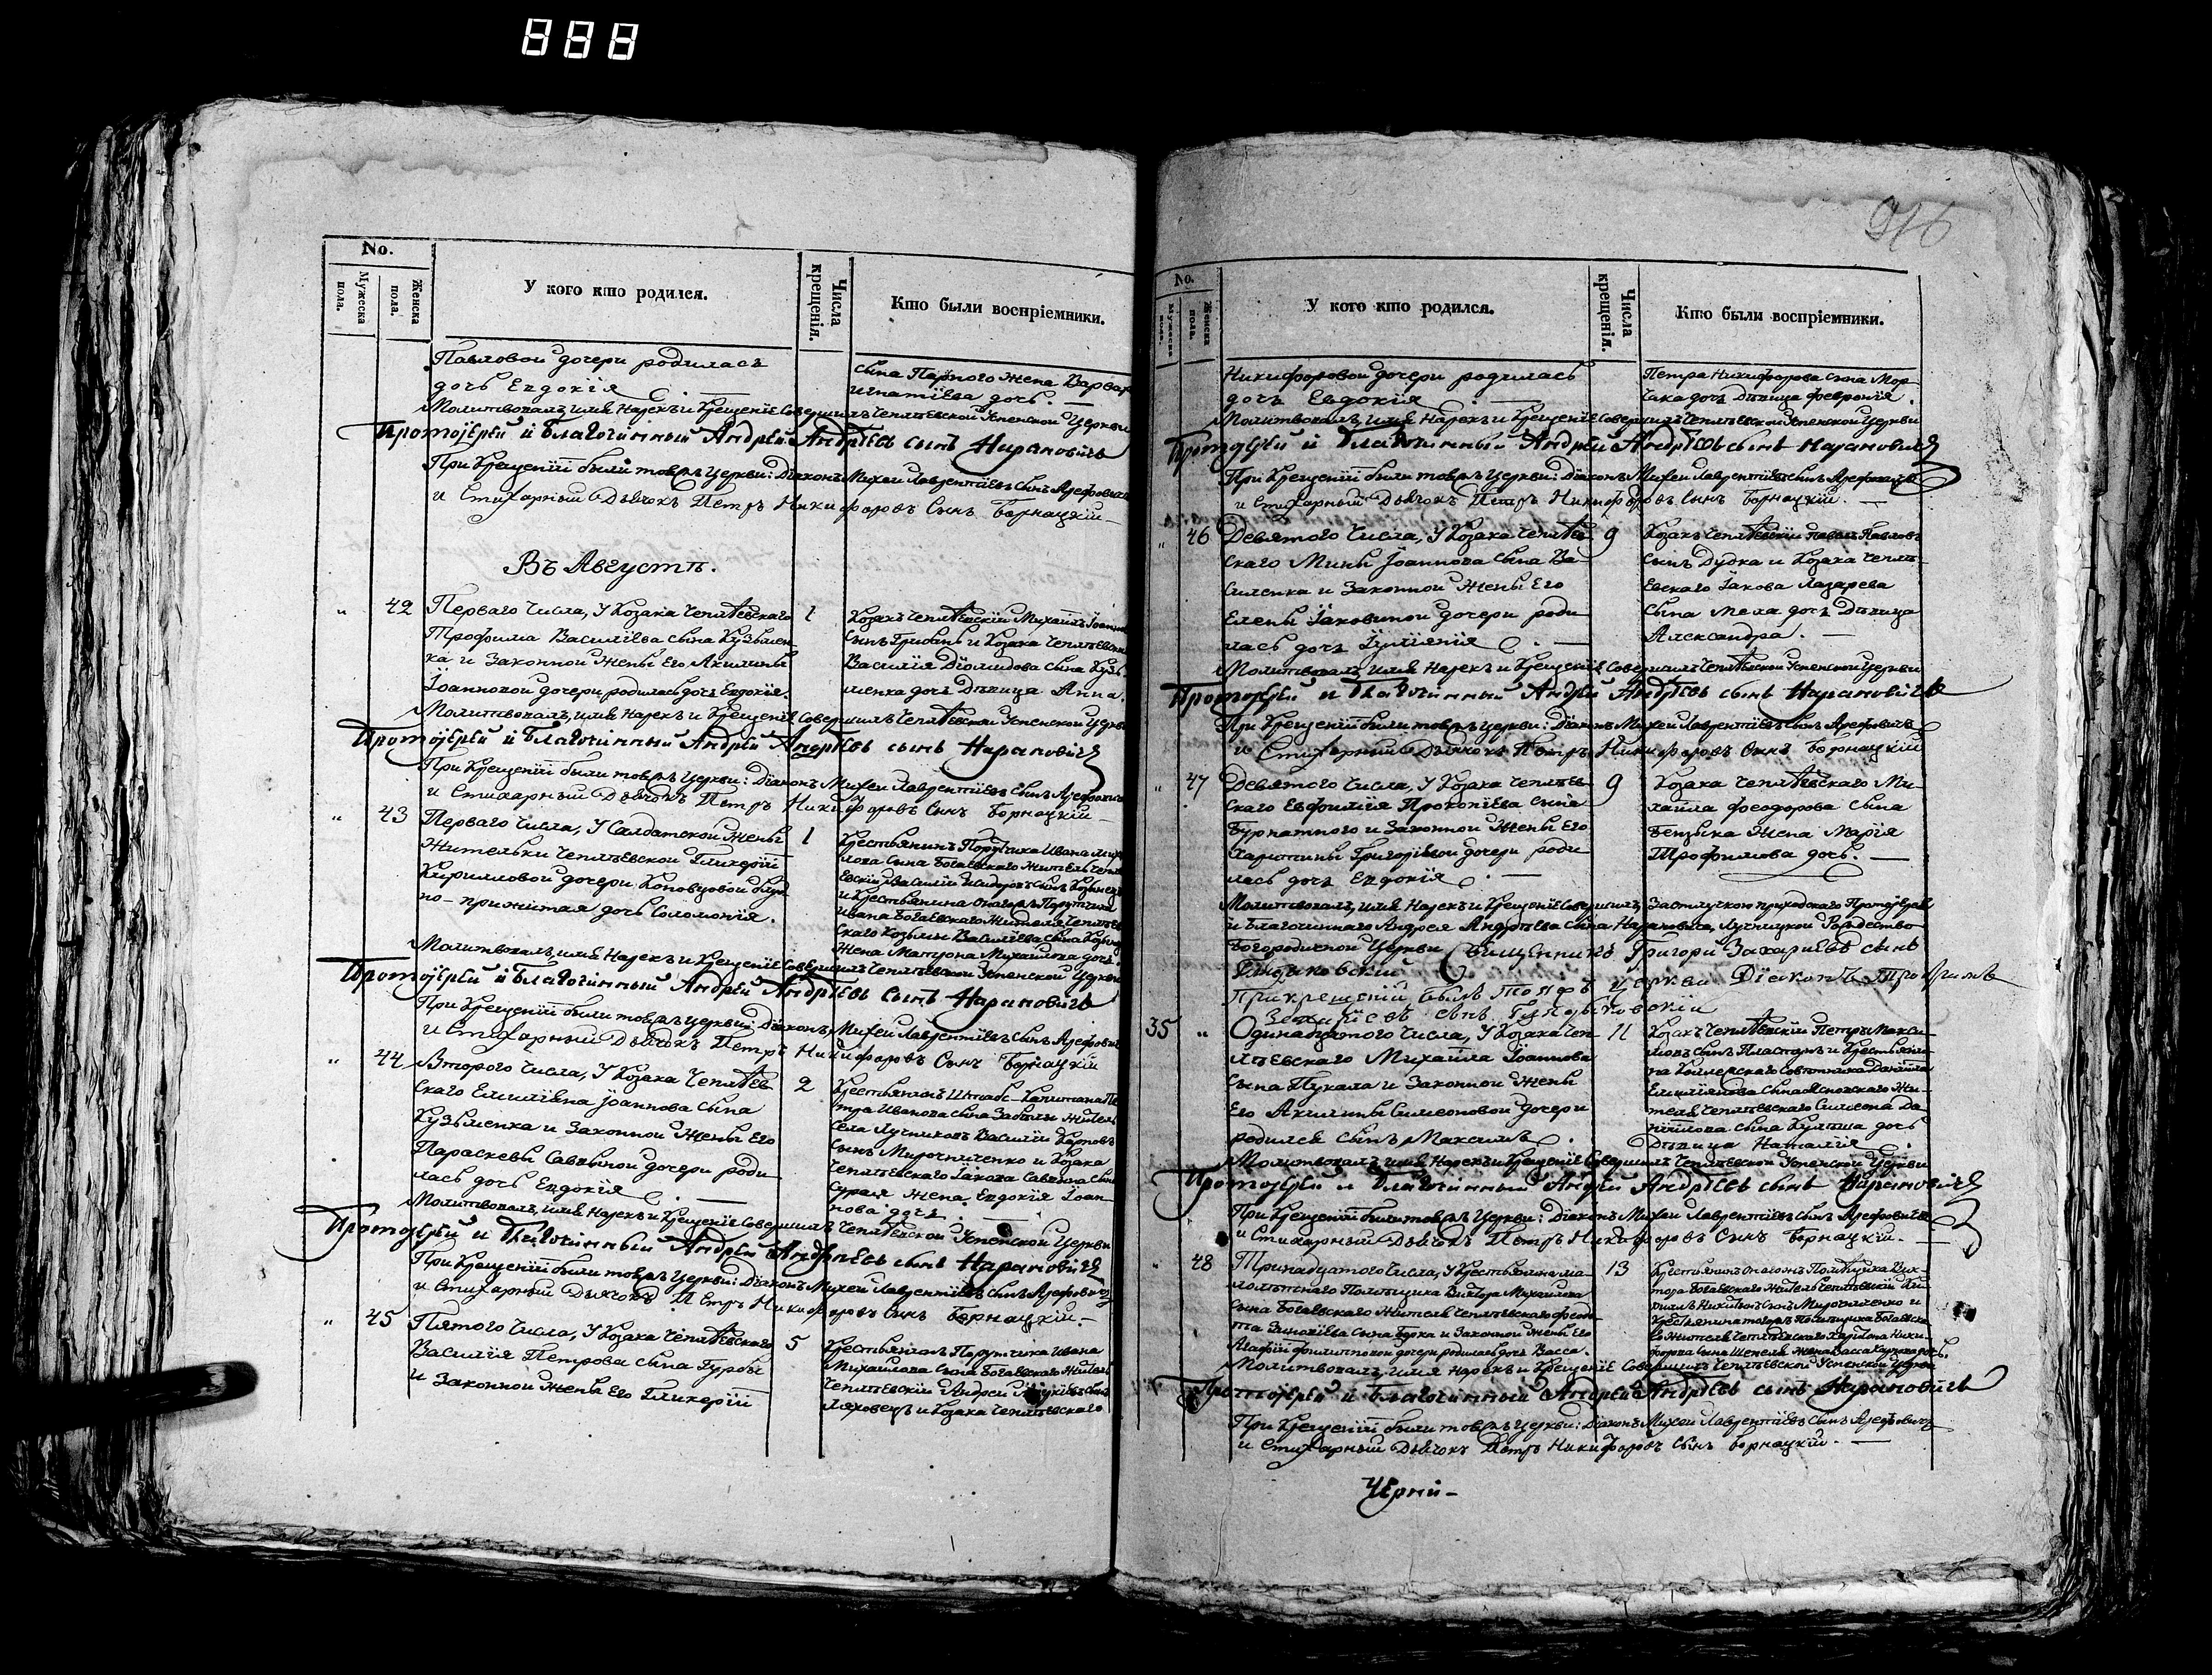 888
No.
Мужеска пола.
Женска пола.
У кого кто родился.
Числа крещенія.
Кто были воспріемники.
Павловой дочери родилась
дочь Евдокія.
сына Парного Жена Варвар
Игнатіева дочь.
Молитвовалъ, имя Нарекъ и Крещеніе Совершилъ Чеплѣевской Успенской Церкви
Протоіерей и Благочинный Андрей Андрѣевъ сынъ Нарановичъ
При Крещеніи были тояжъ Церкви: Діаконъ Михей Лаврентіевъ Сынъ Арефовичъ
и Стихарный Дьячокъ Петръ Никифоровъ Сынъ Борнацкій
Въ Августѣ.
" 42 Перваго Числа, У Козака Чеплѣевскаго
Трофима Василіева сына Кузьмен
ка и Законной Жены Его Акилины
Іоанновой дочери родилась дочь Евдокія.
1
Козакъ Чеплѣевскій Михаилъ Іоанновъ
Сынъ Грибанъ и Козака Чеплѣевска
Василія Діомидова Сына Кузь
менка дочь Дѣвица Анна.
Молитвовалъ, имя Нарекъ и Крещеніе Совершилъ Чеплѣевской Успенской Церкви
Протоіерей и Благочинный Андрей Андрѣевъ сынъ Нарановичъ
При Крещеніи были тояжъ Церкви: Діаконъ Михей Лаврентіевъ Сынъ Арефовичъ
и Стихарный Дьячокъ Петръ Никифоровъ Сынъ Борнацкій
" 43 Перваго Числа, У Салдатской Жены
Жительки Чеплѣевской Гликеріи
Кирилловой дочери Коповцовой блуд
но-прижитая дочь Соломонія.
1
Крестьянинъ Поручика Ивана Миха
лова Сына Богаевскаго Житель Чепл
Евскій Василій Исидоровъ Сынъ
и Крестьянина Онагожъ Поручика
Ивана Богаевскаго Жителя Чеплѣев
скаго Козьмы Василіева Сына
Жена Матрона Михайлова дочь.
Молитвовалъ, имя Нарекъ и Крещеніе Совершилъ Чеплѣевской Успенской Церкви
Протоіерей и Благочинный Андрей Андрѣевъ сынъ Нарановичъ
При Крещеніи были тояжъ Церкви: Діаконъ Михей Лаврентіевъ Сынъ Арефовичъ
и Стихарный Дьячокъ Петръ Никифоровъ Сынъ Борнацкій
" 44 Втораго Числа, У Козака Чеплѣев
скаго Емиліана Іоаннова Сына
Кузьменка и Законной Жены Его
Параскевы Саввиной дочери роди
лась дочь Евдокія.
2
Крестьянинъ Штабс-Капитана Пе
тра Иванова Сына Забѣлы Житель
села Лучниковъ Василій Карповъ
Сынъ Мирочниченко и Козака
Чеплѣевскаго Іакова Саввина Сына
Сурая Жена Евдокія Іоан
нова дочь.
Молитвовалъ, имя Нарекъ и Крещеніе Совершилъ Чеплѣевской Успенской Церкви
Протоіерей и Благочинный Андрей Андрѣевъ сынъ Нарановичъ
При Крещеніи были тояжъ Церкви: Діаконъ Михей Лаврентіевъ Сынъ Арефовичъ
и Стихарный Дьячокъ Петръ Никифоровъ Сынъ Борнацкій
" 45 Пятого Числа, У Козака Чеплѣевскаго
Василія Петрова Сына Гурбы
и Законной Жены Его Гликеріи
5
Крестьянинъ Поручика Ивана
Михайлова Сына Богаевскаго Житель
Чеплѣевскій Андрей Сынъ
Ляховецъ и Козака Чеплѣевскаго
916
No.
Мужеска пола.
Женска пола.
У кого кто родился.
Числа крещенія.
Кто были воспріемники.
Никифоровой дочери родилась
дочь Евдокія.
Петра Никифорова Сына Мор
сака дочь Дѣвица Февронія.
Молитвовалъ, имя Нарекъ и Крещеніе Совершилъ Чеплѣевской Успенской Церкви
Протоіерей и Благочинный Андрей Андрѣевъ сынъ Нарановичъ
При Крещеніи были тояжъ Церкви: Діаконъ Михей Лаврентіевъ Сынъ Арефовичъ
и Стихарный Дьячокъ Петръ Никифоровъ Сынъ Борнацкій.
" 46 Девятого Числа, У Козака Чеплѣев
скаго Мины Іоаннова Сына Ва
силенка и Законной Жены Его
Елены Іаковиной дочери роди
лась дочь Іуліянія.
9
Козакъ Чеплѣевскій Павелъ Павловъ
Сынъ Дудка и Козака Чеплѣ
Евскаго Іакова Лазарева
Сына Мела дочь Дѣвица
Александра.
Молитвовалъ, имя Нарекъ и Крещеніе Совершилъ Чеплѣевской Успенской Церкви
Протоіерей и Благочинный Андрей Андрѣевъ сынъ Нарановичъ
При Крещеніи были тояжъ Церкви: Діаконъ Михей Лаврентіевъ Сынъ Арефовичъ
и Стихарный Дьячокъ Петръ Никифоровъ Сынъ Борнацкій
" 47 Девятого Числа, У Козака Чеплѣев
скаго Евфимія Прокопіева Сына
Бурнатного и Законной Жены Его
Харитины Григоріевой дочери роди
лась дочь Евдокія.
9
Козака Чеплѣевскаго Ми
хайла Феодорова Сына
Бензыка Жена Марія
Трофимова дочь.
Молитвовалъ, имя Нарекъ и Крещеніе Совершилъ, За отлучкою приходскаго Протоіерея
и Благочиннаго Андрея Андрѣева Сына Нарановича, Лучницкой Рождество
Богородичной Церкви Священникъ Григорій Захаріевъ сынъ
При крещеніи былъ тояжъ церкви Діяконъ Трофимъ
Захаріевъ сынъ
35 " Одинадцятого Числа, У Козака Чеп
лѣевскаго Михаила Іоаннова
Сына Пукала и Законной Жены
Его Акилины Симеоновой дочери
родился Сынъ Максимъ.
11
Козакъ Чеплѣевскій Петръ Макси
мовъ Сынъ Пластунъ и Крестьяни
на Совѣтника Даніила
Емиліянова Сына Ясновскаго Жи
теля Чеплѣевскаго Симеона Да
ніилова Сына Кулѣша дочь
Дѣвица Наталія.
Молитвовалъ, имя Нарекъ и Крещеніе Совершилъ Чеплѣевской Успенской Церкви
Протоіерей и Благочинный Андрей Андрѣевъ сынъ Нарановичъ
При Крещеніи были тояжъ Церкви: Діаконъ Михей Лаврентіевъ Сынъ Арефовичъ
и Стихарный Дьячокъ Петръ Никифоровъ Сынъ Борнацкій.
" 48 Тринадцатого Числа, У Крестьянина ма
лолѣтнаго Помѣщика Виктора Михайлова
Сына Богаевскаго Жителя Чеплѣевскаго Феодо
та Зиновіева Сына Борка и Законной Жены Его
Агафіи Филипповой дочери родилась дочь Васса.
13
Крестьянинъ Онагожъ Помѣщика Вик
тора Богаевскаго Житель Чеплѣевскій Ки
риллъ Никитинъ Сынъ Мирочниченко и
Крестьянина тогожъ Помѣщика Богаевска
го Жителя Чеплѣевскаго Харитона Ники
форова Сына Шепеля Жена Васса Карпова дочь.
Молитвовалъ, имя Нарекъ и Крещеніе Совершилъ Чеплѣевской Успенской Церкви
Протоіерей и Благочинный Андрей Андрѣевъ сынъ Нарановичъ
При Крещеніи были тояжъ Церкви: Діаконъ Михей Лаврентіевъ Сынъ Арефовичъ
и Стихарный Дьячокъ Петръ Никифоровъ Сынъ Борнацкій.
Черни-